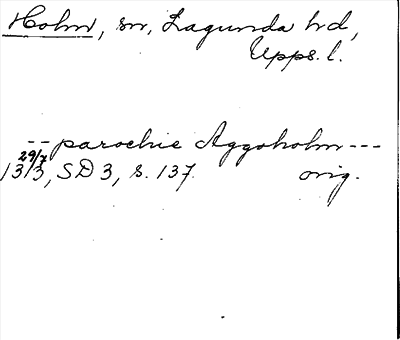 Holm, sn, Lagunda hd,
Upps. l.
-- parochie Aggoholm ---
1313 29/7, SD 3, s. 137. orig.